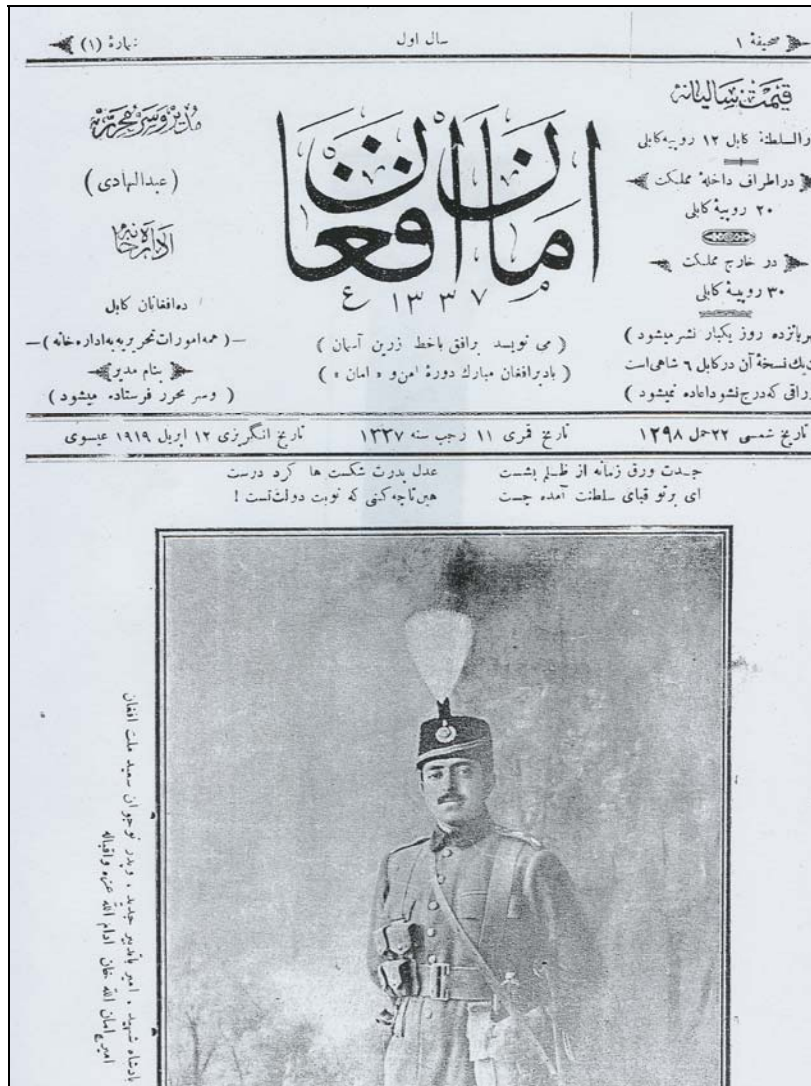 صحیفهٔ ۱
سال اول
نمارهٔ (۱)
قیمت سالیانه
دارالسلطنهٔ کابل ۱۲ روپیه کابلی
در اطراف داخلهٔ مملکت
۲۰ روپیهٔ کابلی
در خارج مملکت
۳۰ روپیهٔ کابلی
هر پانزده روز یکبار نشر میشود )
یک نسخهٔ آن در کابل ۶ شاهی است
اوراقی که درج نشود اعاده نمیشود )
امان افغان
۱۳۳۷ ع
( می نویسد بر افق با خط زرین آسمان )
( باد بر افغان مبارك دورهٔ امن و « امان » )
مدیر و سر محرر
( عبدالهادی )
اداره خانه
ده افغانان کابل
—( همه امورات تحریریه به اداره خانه )—
بنام مدیر
( و سر محرر فرستاده میشود )
تاریخ شمسی ۲۲ حمل ۱۲۹۸
تاریخ قمری ۱۱ رجب سنه ۱۳۳۷
تاریخ انگریزی ۱۲ اپریل ۱۹۱۹ عیسوی
ورق زمانه از ظلم بشست
عدل پدرت شکست ها کرد درست
ای بر تو قبای سلطنت آمده چست
هین تا چه کنی که نوبت دولت تست !
پادشاه شهید ، امیر با تدبیر جدید ، و پدر نوجوان سعید ملت افغان
امیر امان الله خان ادام الله عزه و اقباله